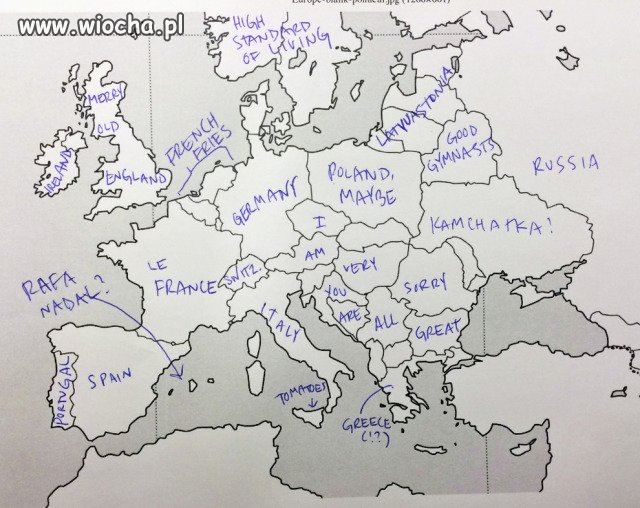 Europe-blank-political.jpg (1200×881)
www.wiocha.pl
HIGH
STANDARD
OF LIVING
MERRY
OLD
ENGLAND
IRELAND
FRENCH
FRIES
LATVASTONIA
GOOD
GYMNASTS
RUSSIA
GERMANY
POLAND,
MAYBE
KAMCHATKA!
I
AM
VERY
SORRY
YOU
ARE
ALL
GREAT
LE
FRANCE
SWITZ.
ITALY
RAFA
NADAL?
SPAIN
PORTUGAL
TOMATOES
GREECE
(!?)